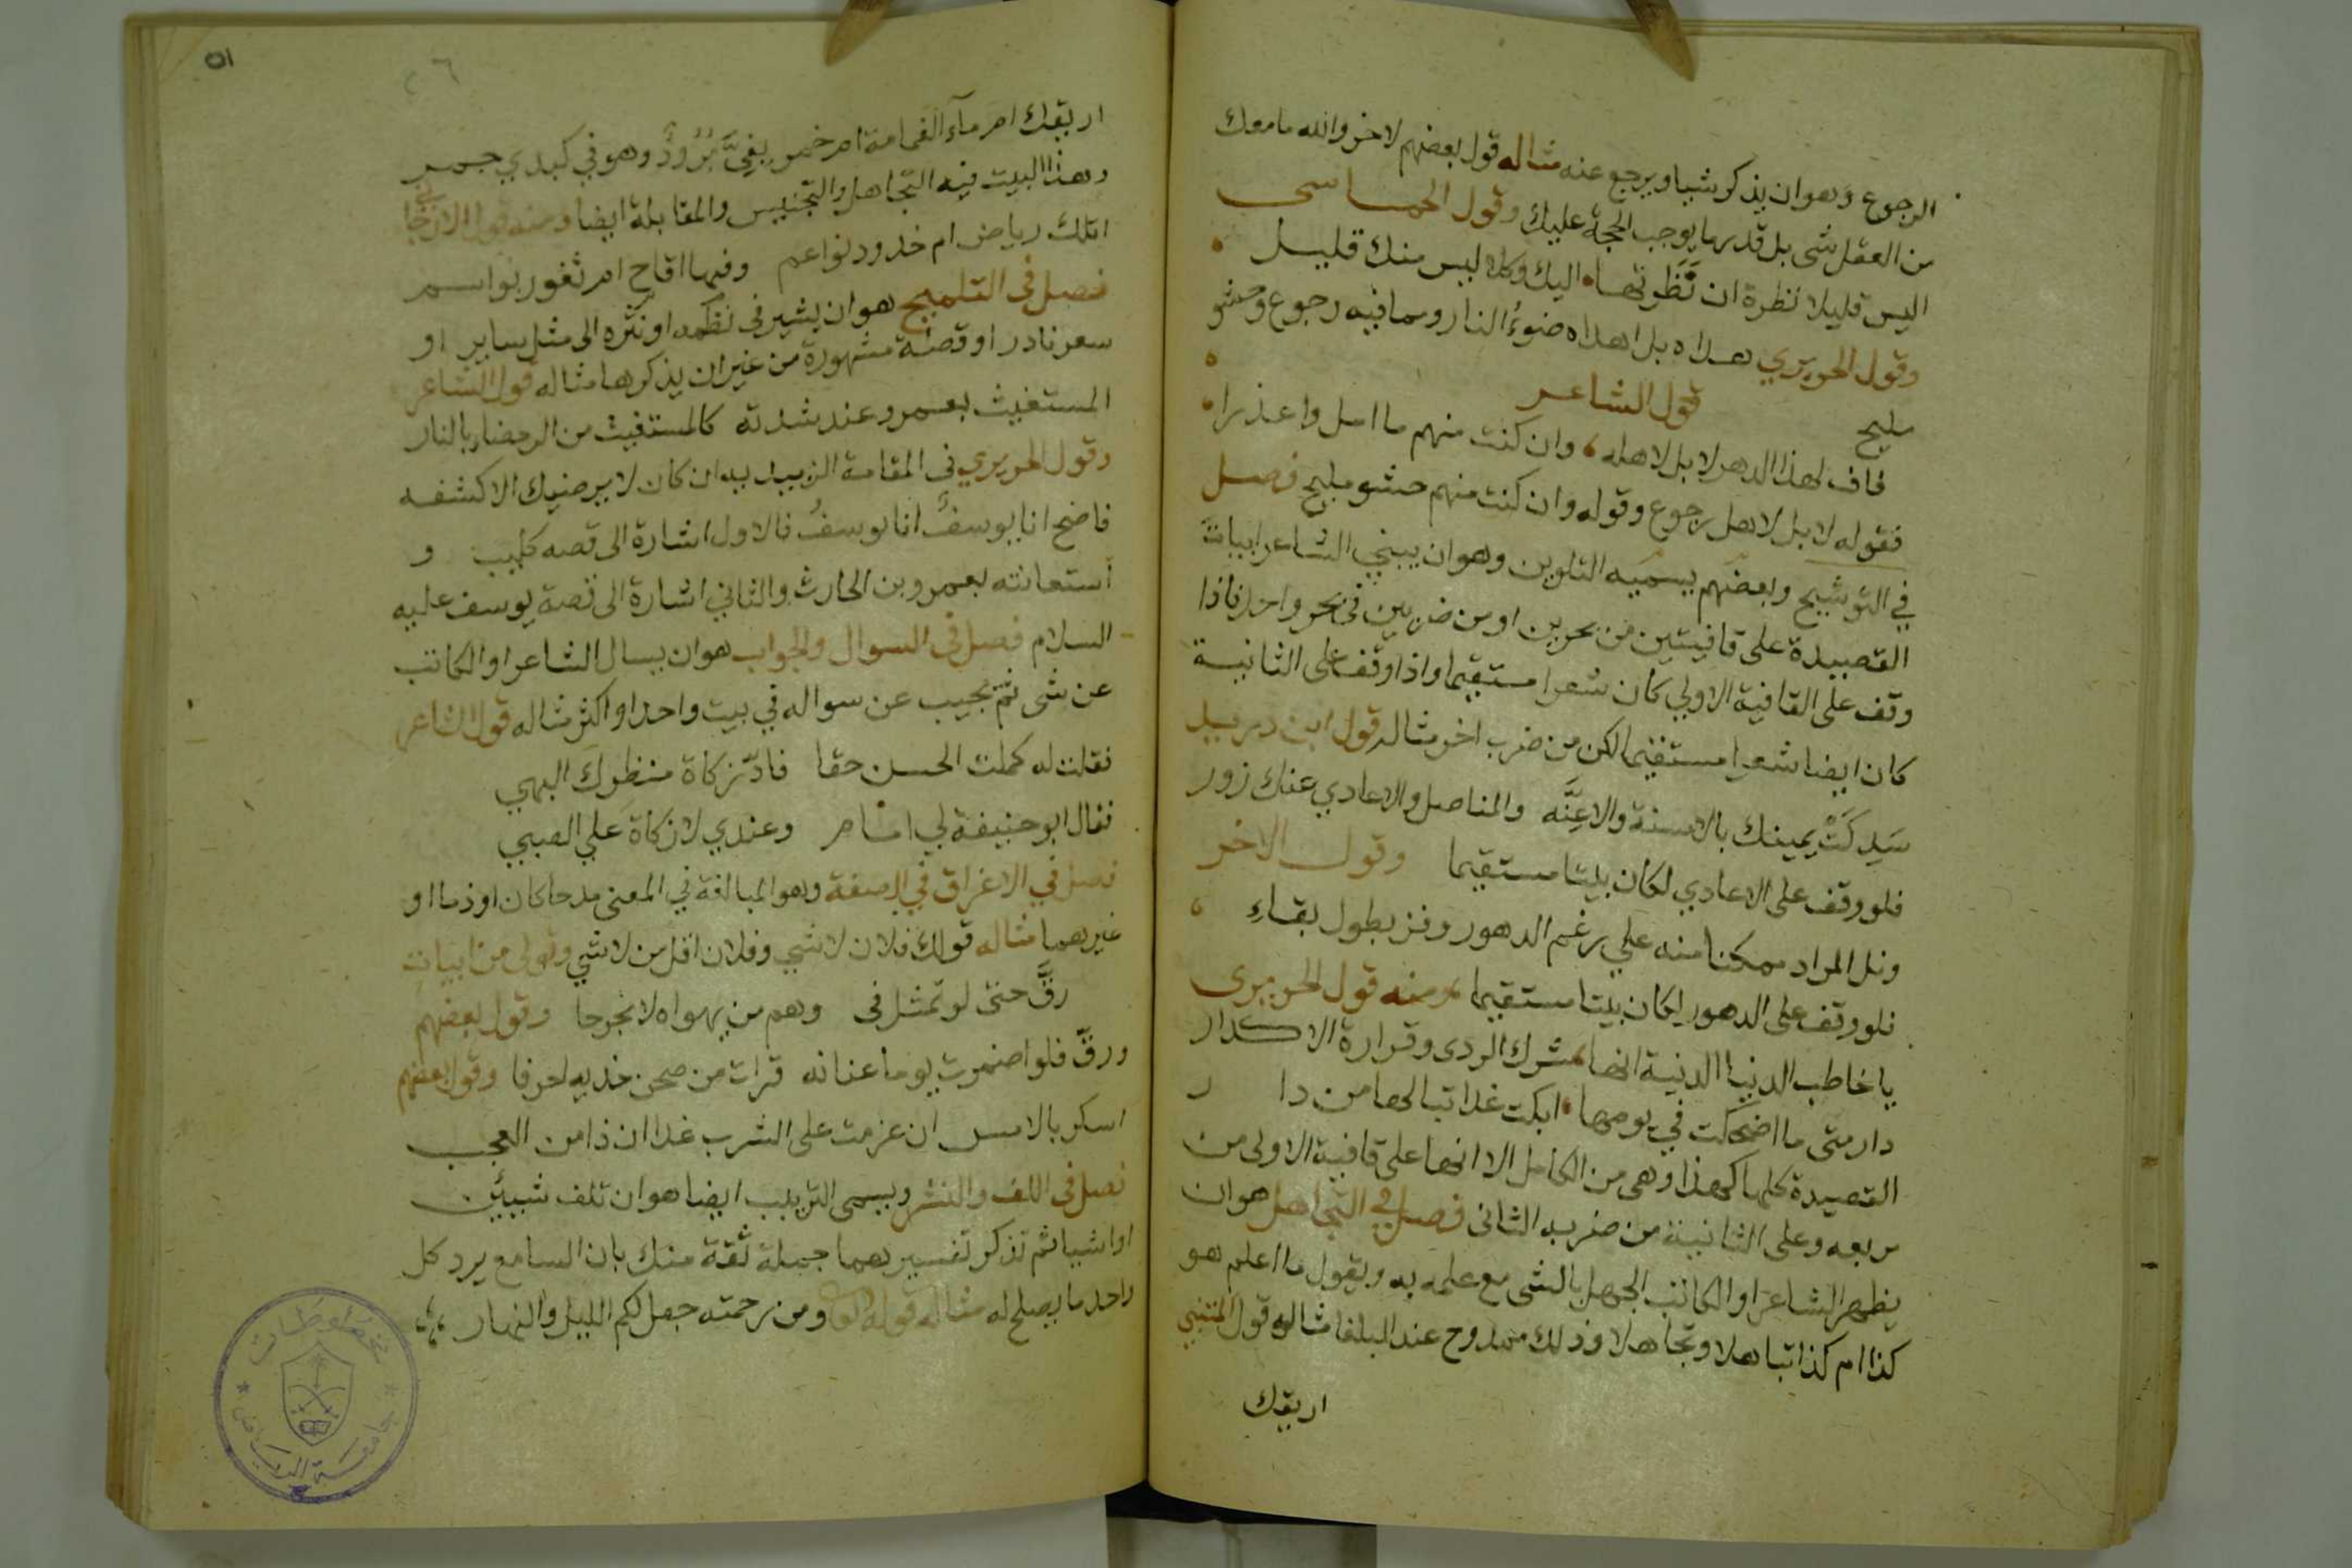 الرجوع وهو ان يذكر شيا ويرجع عنه مثاله قول بعضهم لاخر والله ما معك
من العقل شى بل قدر ما يوجب الحجة عليك وقول الحماسى
اليس قليلا نظرة ان نظرتها اليك وكلا ليس منك قليل
وقول الحريري هداه بل اهداه ضوءُ النار ومما فيه رجوع وحشو
مليح قول الشاعر
فاف لهذا الدهر لا بل لاهله وان كنت منهم ما امل واعذرا
فقوله لا بل لاهل رجوع وقوله وان كنت منهم حشو مليح فصل
في التوشيح وبعضهم يسميه التلوين وهو ان يبني الشاعر ابيات
القصيدة على قافيتين من بحرين او من ضربين فى بحر واحد فاذا
وقف على القافية الاولي كان شعرا مستقيما واذا وقف على الثانية
كان ايضا شعرا مستقيما لكن من ضرب اخر مثاله قول ابن دريد
سَدِكَتْ يمينك بالاسنة والاعِنَّه والمناصل والاعادي عنك زور
فلو وقف على الاعادي لكان بيتا مستقيما وقول الاخر
ونل المراد ممكنا منه علي رغم الدهور وفز بطول بقاءِ
فلو وقف على الدهور لكان بيتا مستقيما ومنه قول الحريرى
يا خاطب الدنيا الدنية انها شرك الردى وقرارة الاكدار
دار متى ما اضحكت في يومها ابكت غدا تبا لها من دا ر
القصيدة كلها كهذا وهى من الكامل الا انها على قافية الاولى من
مربعه وعلى الثانية من ضربه الثانى فصل في التجاهل هو ان
يظهر الشاعر او الكاتب الجهل بالشى مع علمه به ويقول ما اعلم هو
كذا ام كذا تباهلا وتجاهلا وذلك ممدوح عند البلغا مثاله قول المتنبي
اريقك
٥١
٢٦
اريقك ام مآء الغمامة ام خمر بفيَّ بُرُودٌ وهو في كبدي جمر
وهذا البيت فيه التجاهل والتجنيس والمقابلة ايضا ومنه قول الارجانى
اتلك رياض ام خدود نواعم وفيها اقاح ام ثغور بواسم
فصل فى التلميح هو ان يشير فى نظمه او نثره الى مثل ساير او
سعر نادر او قصة مشهورة من غير ان يذكرها مثاله قول الشاعر
المستغيث بعمرو عند شدته كالمستغيث من الرمضاء بالنار
وقول الحريري فى المقامة الزبيديه ان كان لا يرضيك الا كشفه
فاضح انا يوسفٌ انا يوسفُ فالاول اشارة الى قصه كليب و
استعانته بعمرو بن الحارث والثاني اشارة الى قصة يوسف عليه
السلام فصل فى السوال والجواب هو ان يسال الشاعر او الكاتب
عن شى ثم يجيب عن سواله في بيت واحد او اكثر مثاله قول الشاعر
فقلت له كملت الحسن حقا فادّ زكاة منظرك البهي
فقال ابو حنيفة لي امام وعندي لا زكاة علي الصبي
فصل في الاغراق في الصفة وهو المبالغة في المعنى مدحا كان او ذما او
غيرهما مثاله قولك فلان لا شي وفلان اقل من لا شي وقولى من ابيات
رقَّ حتى لو تمثل فى وهم من يهواه لانجرحا وقول بعضهم
ورقَّ فلو اضمرت يوما عنانه قرات من صحن خديه احرفا وقول بعضهم
اسكر بالامس ان عزمت على الشرب غدا ان ذا من العجب
فصل فى اللف والنشر ويسمى الترتيب ايضا هو ان تلف شيئين
او اشيا ثم تذكر تفسيرهما جملة ثقة منك بان السامع يرد كل
واحد ما يصلح له مثاله قوله تعالى ومن رحمته جعل لكم الليل والنهار
مخطوطات
جامعة الرياض